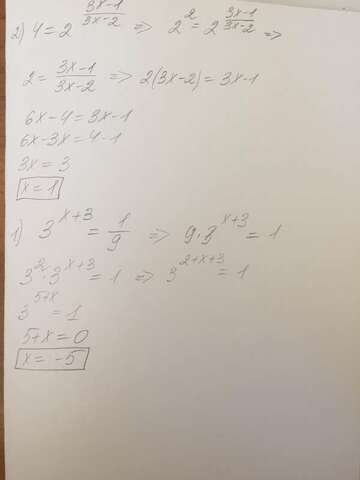 2) 4 = 2^((3x-1)/(3x-2)) => 2^2 = 2^((3x-1)/(3x-2)) =>
2 = (3x-1)/(3x-2) => 2(3x-2) = 3x-1
6x-4 = 3x-1
6x-3x = 4-1
3x = 3
x = 1
1) 3^(x+3) = 1/9 => 9·3^(x+3) = 1
3^2·3^(x+3) = 1 => 3^(2+x+3) = 1
3^(5+x) = 1
5+x = 0
x = -5